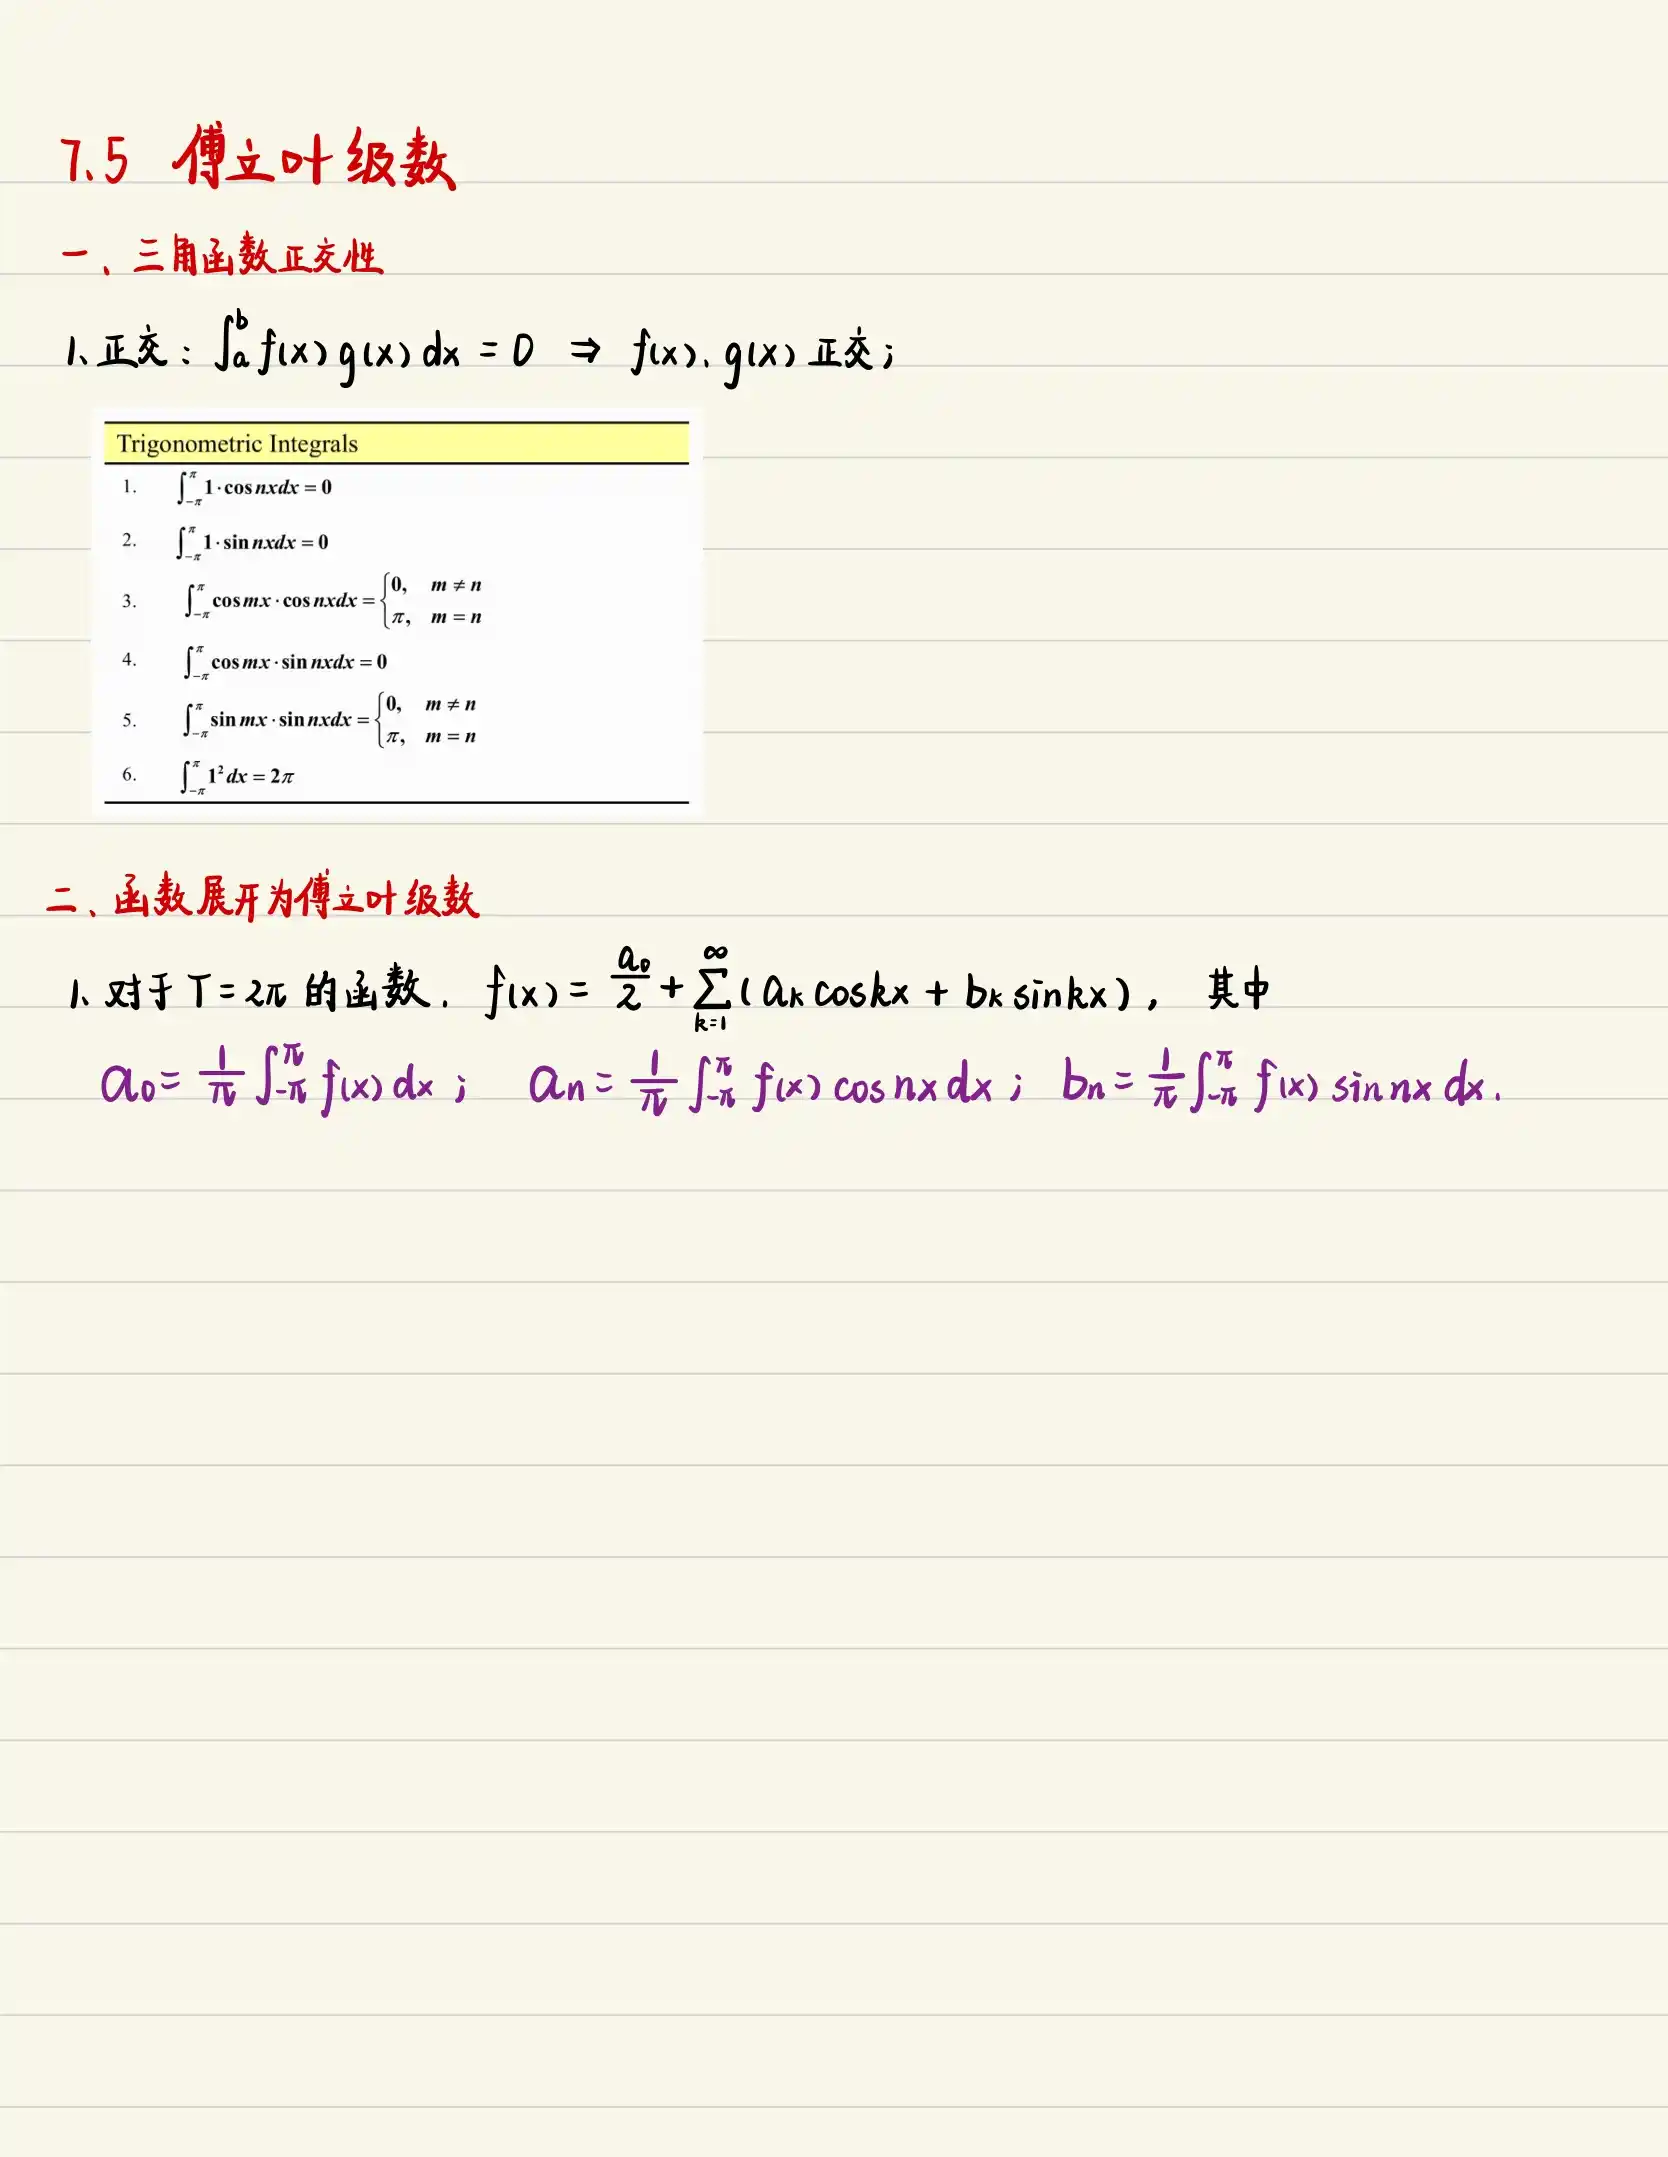 7.5 傅立叶级数
一、三角函数正交性
1、正交：∫_a^b f(x)g(x)dx = 0 ⇒ f(x)、g(x)正交；
Trigonometric Integrals
1. ∫_{-π}^{π} 1·cos nxdx = 0
2. ∫_{-π}^{π} 1·sin nxdx = 0
3. ∫_{-π}^{π} cos mx·cos nxdx = {0, m ≠ n
π, m = n
4. ∫_{-π}^{π} cos mx·sin nxdx = 0
5. ∫_{-π}^{π} sin mx·sin nxdx = {0, m ≠ n
π, m = n
6. ∫_{-π}^{π} 1² dx = 2π
二、函数展开为傅立叶级数
1、对于T=2π的函数．f(x) = a₀/2 + ∑_{k=1}^{∞}(aₖcoskx + bₖsinkx)， 其中
a₀ = 1/π ∫_{-π}^{π} f(x)dx； aₙ = 1/π ∫_{-π}^{π} f(x)cos nx dx； bₙ = 1/π ∫_{-π}^{π} f(x) sin nx dx.